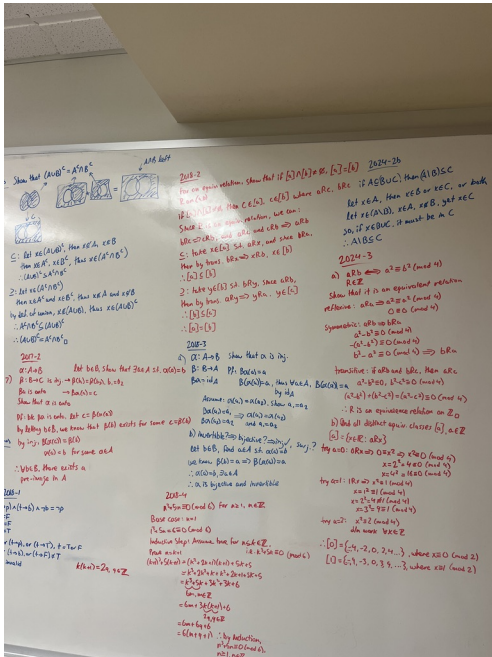 Show that (A∪B)ᶜ = Aᶜ∩Bᶜ
A∩B left
⊆: let x∈(A∪B)ᶜ, then x∉A, x∉B
then x∈Aᶜ, x∈Bᶜ, thus x∈(Aᶜ∩Bᶜ)
∴(A∪B)ᶜ ⊆ Aᶜ∩Bᶜ
⊇: let x∈(Aᶜ∩Bᶜ)
then x∈Aᶜ and x∈Bᶜ, thus x∉A and x∉B
by def. of union, x∉(A∪B), thus x∈(A∪B)ᶜ
∴Aᶜ∩Bᶜ⊆(A∪B)ᶜ
∴(A∪B)ᶜ=Aᶜ∩Bᶜ□
2017-2
7) α: A→B let b∈B, show that ∃a∈A st. α(a)=b
β: B→C is inj. → β(b₁)=β(b₂), b₁=b₂
βα is onto → βα(a)=c
Show that α is onto
Pf: bk βα is onto, let c=β(α(a))
by letting b∈B, we know that β(b) exists for some c=β(b)
by inj. β(α(a))=β(b)
α(a)=b for some a∈A
∴∀b∈B, there exists a
pre-image in A
2018-1
k(k+1)=2q, q∈ℤ
2018-2
For an equiv relation, show that if [a]∩[b]≠∅, [a]=[b]
if [a]∩[b]≠∅, then c∈[a], c∈[b] where aRc, bRc
Since R is an equiv. relation, we can:
bRc ⇒ cRb, and aRc and cRb ⇒ aRb
⊆: take x∈[a] st. aRx, and since bRa,
then by trans. bRx⇒xRb, x∈[b]
∴[a]⊆[b]
⊇: take y∈[b] st. bRy, since aRb,
then by trans. aRy⇒yRa. y∈[a]
∴[b]⊆[a]
∴[a]=[b]
2018-3
a) α: A→B show that α is inj.
β: B→A Pf: βα(a)=a
βα=id_A
Assume: α(a₁)=α(a₂), show a₁=a₂
b) Invertible?⇒ bijective?⇒inj✓, surj.?
let b∈B, find a∈A st. α(a)=b
we know β(b)=a ⇒ β(α(a))=a
∴α(a)=b, ∃a∈A
∴α is bijective and invertible
2018-4
n³+5n≡0(mod 6) for n≥1, n∈ℤ
Base case: n=1
1³+5≡6≡0(mod 6)
Inductive Step: Assume, true for n=k, k∈ℤ
i.e. k³+5k≡0(mod 6)
Prove n=k+1
(k+1)³+5(k+1)=(k²+2k+1)(k+1)+5k+5
=k³+2k²+k+k²+2k+1+5k+5
=k³+5k+3k²+3k+6
6m, m∈ℤ
=6m+3k(k+1)+6
2q, q∈ℤ
=6m+6q+6
=6(m+q+1)
∴by induction,
n³+5n≡0(mod 6),
n≥1, n∈ℤ
2024-2b
if A⊆B∪C, then (A\B)⊆C
let x∈A, then x∈B or x∈C, or both
let x∈(A\B), x∈A, x∉B, yet x∈C
so, if x∈B∪C, it must be in C
∴A\B⊆C
2024-3
a) aRb ⟺ a²≡b²(mod 4)
R∈ℤ
Show that it is an equivalent relation
reflexive: aRa ⇒ a²≡a²(mod 4)
0≡0(mod 4)
symmetric: aRb⇒bRa
a²-b²≡0(mod 4)
-(a²-b²)≡0(mod 4)
b²-a²≡0(mod 4) ⟹ bRa
transitive: if aRb and bRc, then aRc
a²-b²≡0, b²-c²≡0(mod 4)
(a²-b²)+(b²-c²)=(a²-c²)≡0(mod 4)
∴R is an equivalence relation on ℤ□
b) Find all distinct equiv. classes [a], a∈ℤ
[a]={x∈ℤ: aRx}
try a=0: 0Rx⇒0≡x²⇒x²≡0(mod 4)
x=2²=4≡0(mod 4)
x=4²=16≡0(mod 4)
try a=1: 1Rx⇒x²≡1(mod 4)
x=1²≡1(mod 4)
x=2²=4≢1(mod 4)
x=3²=9≡1(mod 4)
try a=2: x²≡2(mod 4)
∴[0]={-4,-2,0,2,4...}, where x≡0(mod 2)